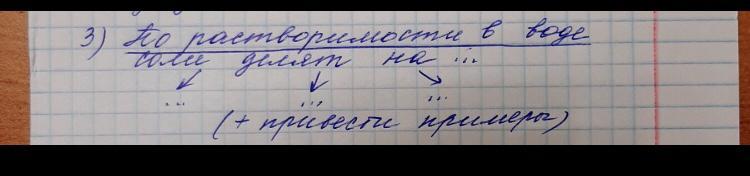 3) По растворимости в воде
соли делят на ...
... ... ...
(+ привести примеры)